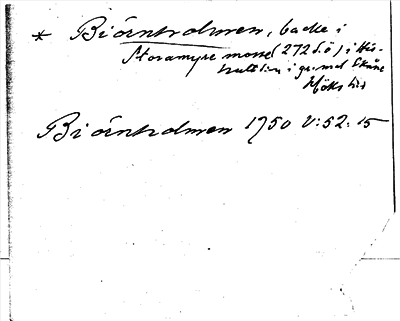 * Biörnholmen, backe i
Storamyre mosse (272 f.ö) i His-
hult sn i gr. mot Skåne
Höks hd
Biörnholmen 1750 V:52:15